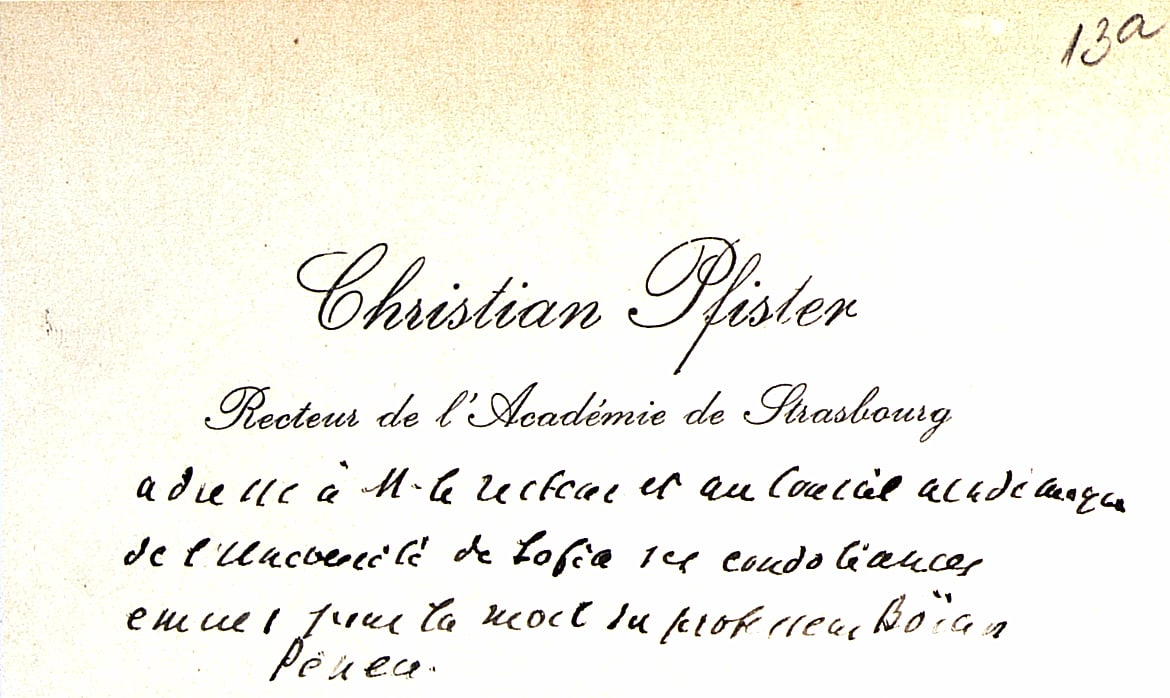 13a
Christian Pfister
Recteur de l'Académie de Strasbourg
adresse à M. le recteur et au Conseil académique
de l'Université de Sofia ses condoléances
émues pour la mort du professeur Boïan
Péneu.